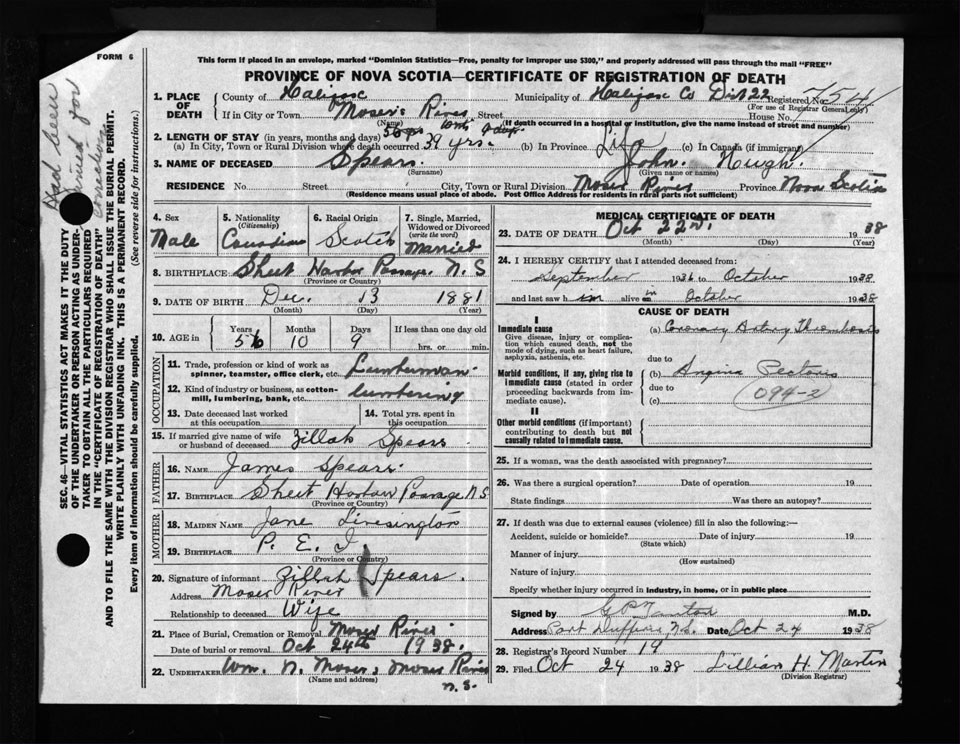 FORM 6
This form if placed in an envelope, marked "Dominion Statistics—Free, penalty for improper use $300," and properly addressed will pass through the mail "FREE"
PROVINCE OF NOVA SCOTIA—CERTIFICATE OF REGISTRATION OF DEATH
1. PLACE OF DEATH
County of Halifax Municipality of Halifax Co Dist 22 Registered No. 754
(For use of Registrar General only)
If in City or Town Moser's River Street House No.
(Name) (If death occurred in a hospital or institution, give the name instead of street and number)
2. LENGTH OF STAY (in years, months and days) 56 yrs 10 ms 9 days
(a) In City, Town or Rural Division where death occurred 39 yrs. (b) In Province Life (c) In Canada (if immigrant)
3. NAME OF DECEASED Spears. John. Hugh.
(Surname) (Given name or names)
RESIDENCE No. Street City, Town or Rural Division Moser River Province Nova Scotia
(Residence means usual place of abode. Post Office Address for residents in rural parts not sufficient)
Had been
for
correction
SEC. 46—VITAL STATISTICS ACT MAKES IT THE DUTY
OF THE UNDERTAKER OR PERSON ACTING AS UNDER-
TAKER TO OBTAIN ALL THE PARTICULARS REQUIRED
IN THE "CERTIFICATE OF REGISTRATION OF DEATH"
AND TO FILE THE SAME WITH THE DIVISION REGISTRAR WHO SHALL ISSUE THE BURIAL PERMIT.
WRITE PLAINLY WITH UNFADING INK. THIS IS A PERMANENT RECORD.
Every item of Information should be carefully supplied. (See reverse side for instructions.)
4. Sex
Male
5. Nationality
(Citizenship)
Canadian
6. Racial Origin
Scotch
7. Single, Married,
Widowed or Divorced
(write the word)
Married
8. BIRTHPLACE Sheet Harbor Passage. N.S
(Province or Country)
9. DATE OF BIRTH Dec. 13 1881
(Month) (Day) (Year)
10. AGE in Years Months Days If less than one day old
56 10 9 hrs. or min.
OCCUPATION
11. Trade, profession or kind of work as
spinner, teamster, office clerk, etc. Lumberman
12. Kind of industry or business, as cotton-
mill, lumbering, bank, etc. lumbering
13. Date deceased last worked
at this occupation
14. Total yrs. spent in
this occupation
15. If married give name of wife
or husband of deceased Zillah Spears
FATHER
16. NAME James Spears.
17. BIRTHPLACE Sheet Harbour Passage N.S
(Province or Country)
MOTHER
18. MAIDEN NAME Jane Livesington
19. BIRTHPLACE P. E. I.
(Province or Country)
20. Signature of informant Zillah Spears.
Address Moser River
Relationship to deceased Wife
21. Place of Burial, Cremation or Removal Moser River
Date of burial or removal Oct 24th 1938.
22. UNDERTAKER Wm. N. Moser, Moser River
(Name and address) N.S.
MEDICAL CERTIFICATE OF DEATH
23. DATE OF DEATH Oct 22nd. 1938
(Month) (Day) (Year)
24. I HEREBY CERTIFY that I attended deceased from:
September 1936 to October 1938
and last saw him alive in October 1938
CAUSE OF DEATH
I
Immediate cause
Give disease, injury or complica-
tion which caused death, not the
mode of dying, such as heart failure,
asphyxia, asthenia, etc.
(a) Coronary Artery Thrombosis
due to
Morbid conditions, if any, giving rise to
immediate cause (stated in order
proceeding backwards from im-
mediate cause).
(b) Angina Pectoris
due to
(c) 094-2
II
Other morbid conditions (if important)
contributing to death but not
causally related to immediate cause.
25. If a woman, was the death associated with pregnancy?
26. Was there a surgical operation? Date of operation 19
State findings Was there an autopsy?
27. If death was due to external causes (violence) fill in also the following:—
Accident, suicide or homicide? Date of injury 19
(State which)
Manner of injury
(How sustained)
Nature of injury
Specify whether injury occurred in industry, in home, or in public place
Signed by G P Tanton M.D.
Address Port Dufferin, N.S. Date Oct 24 1938
28. Registrar's Record Number 19
29. Filed Oct 24 1938 Lillian H. Martin
(Division Registrar)